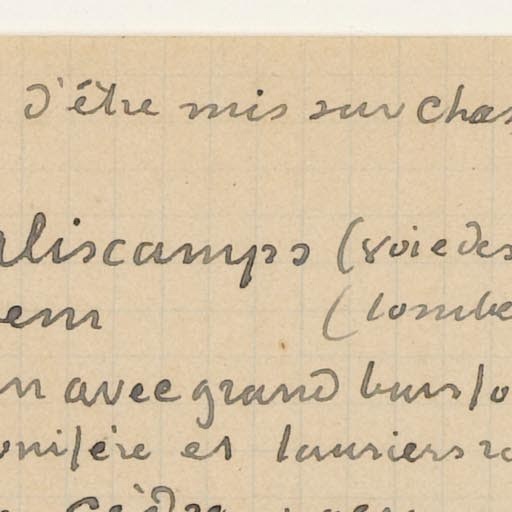 d'être mis sur chas
aliscamps (voie des
em (tombe
n avec grand buisso
onifère et lauriers ro
cèdre